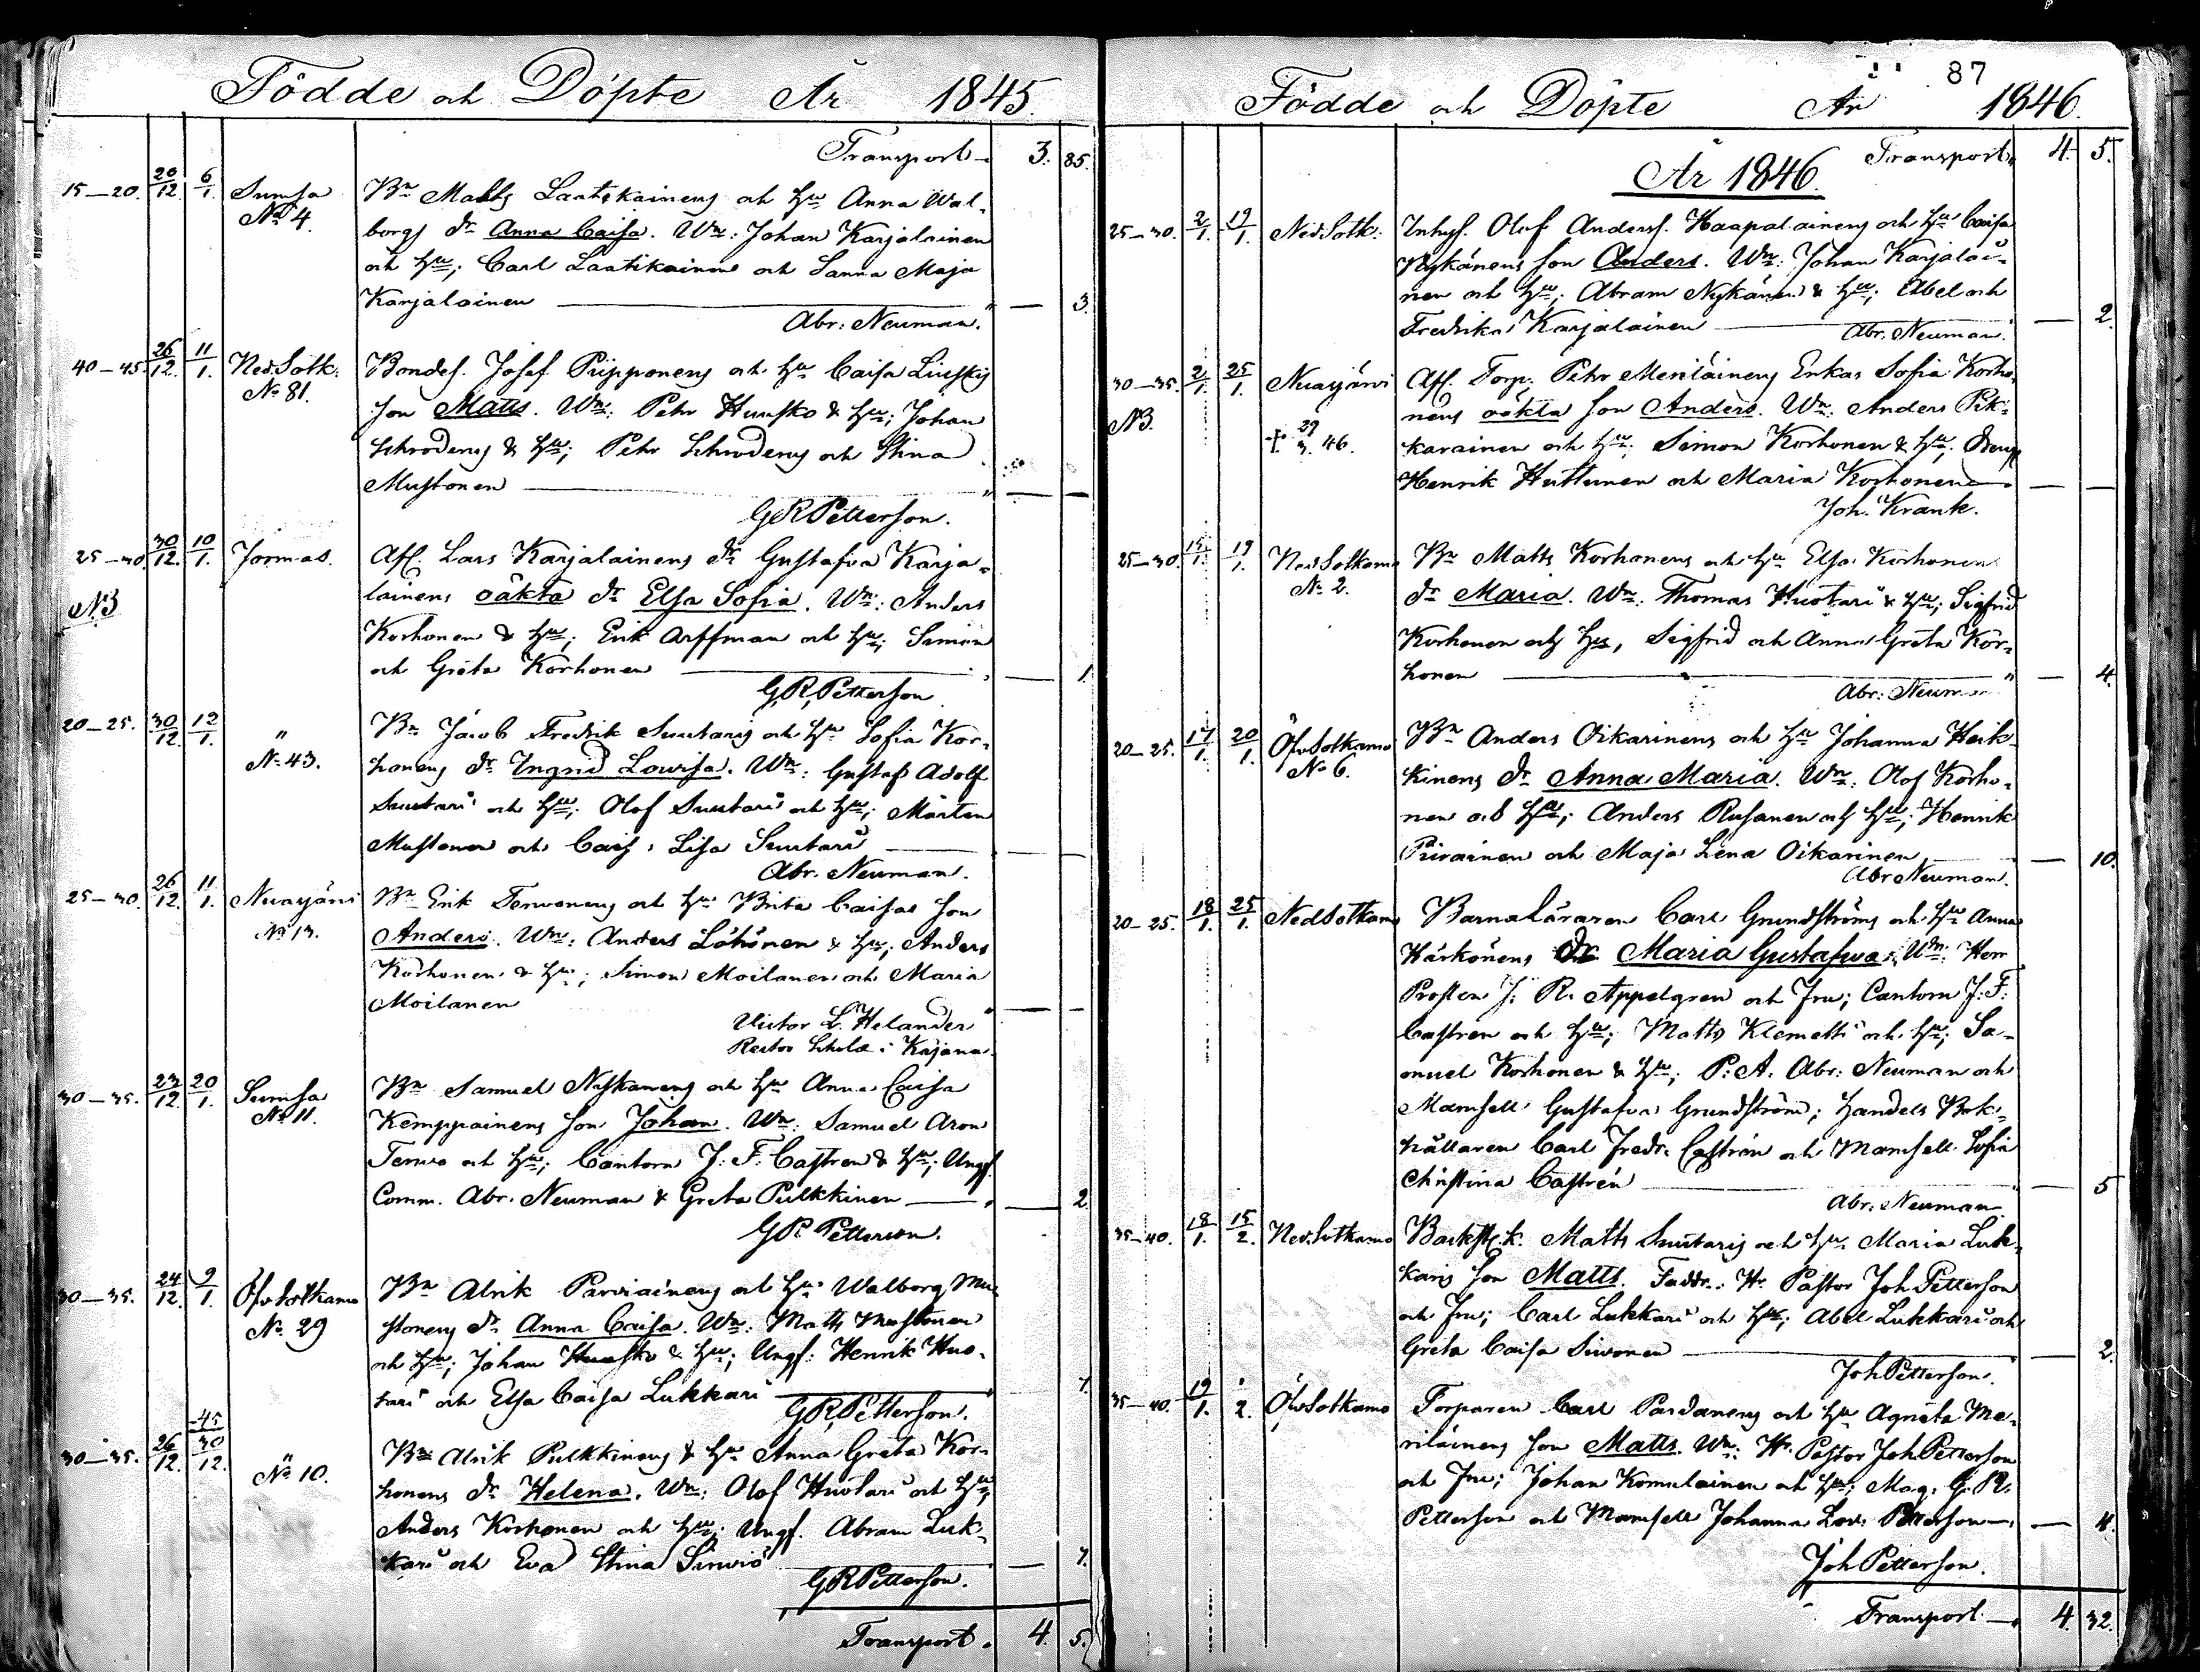 Födde och Döpte År 1845.
Transport 3. 85.
15—20. 20/12 6/1 Sumsa Bn Matts Laatikainens och hu Anna Wal-
No 4. borgs dr Anna Caisa. Wn: Johan Karjalainen
och hu; Carl Laatikainen och Sanna Maja
Karjalainen — 3.
Abr: Neuman.
40—45. 26/12. 11/1. Ned. Sotk: Bondes. Josef Piipponens och hu Caisa
No 81. son Matts. Wn: Pehr Huusko & hu; Johan
Schroderus & hu; Pehr Schroderus och Stina
Mustonen — —
G R Petterson.
25—30. 30/12. 10/1. Jormas. Afl. Lars Karjalainens dr Gustafva Karja-
NB lainens oäkta dr Elsa Sofia. Wn: Anders
Korhonen & hu; Erik Arffman och hu; Simon
och Greta Korhonen — 1.
G. R. Petterson
20—25. 30/12. 12/1. " Bn Jacob Fredrik Suutaris och hu Sofia Kor-
No 43. honens dr Ingrid Lowisa. Wn: Gustaf Adolf
Suutari och hu; Olof Suutari och hu; Mårten
Mustonen och Caisa Lisa Suutari — —
Abr. Neuman.
25—30. 26/12. 11/1. Nuasjärvi Bn Erik Terwonens och hu Brita Caisas son
No 13. Anders. Wn: Anders Löhönen & hu; Anders
Korhonen & hu; Simon Moilanen och Maria
Moilanen — —
Victor L. Helander
Rector Schola i Kajana.
30—35. 23/12. 20/1. Sumsa Bn Samuel Niskanens och hu Anna Caisa
No 11. Kemppainens son Johan. Wn: Samuel Aron
Terwo och hu; Cantorn J: F: Castren & hu; Ungf.
Comm. Abr. Neuman & Greta Pulkkinen — 2.
G R Petterson.
30—35. 24/12. 9/1. Öfv Sotkamo Bn Alrik Parviainens och hu Walborg Mu-
No 29 stonens dr Anna Caisa. Wn: Matts Mustonen
och hu; Johan Huusko & hu; Ungf: Henrik Huo-
tari och Elsa Caisa Lukkari — 7.
G R Petterson.
-45
30—35. 26/12. 30/12. " Bn Alrik Pulkkinens & hu Anna Greta Kor-
No 10. honens dr Helena. Wn: Olof Huotari och hu;
Anders Korhonen och hu; Ungf. Abram Luk-
kari och Eva Stina Sirviö — 7.
G R Petterson.
Transport. 4. 5.
87
Födde och Döpte År 1846.
Transport. 4. 5.
År 1846.
25—30. 2/1. 19/1. Ned. Sotk: Inhys. Olof Anderss. Haapalainens och hu Caisa
Nykänens son Anders. Wn: Johan Karjalai-
nen och hu; Abram Nykänen & hu; Abel och
Fredrika Karjalainen — 2.
Abr. Neuman.
30—35. 2/1. 25/1. Nuasjärvi Afl. Torp: Pehr Meriläinens Enkas Sofia Korho-
NB. nens oäkta son Anders. Wn: Anders Pik-
† 29/3. 46. karainen och hu; Simon Korhonen & hu; Dreng
Henrik Huttunen och Maria Korhonen — —
Joh. Krank.
25—30. 15/1. 19/1. Ned Sotkamo Bn Matts Korhonens och hu Elsa Korhonens
No 2. dr Maria. Wn: Thomas Huotari & hu; Sigfrid
Korhonen och hu, Sigfrid och Anna Greta Kor-
honen — 4.
Abr: Neuman
20—25. 17/1. 20/1. Öfv Sotkamo Bn Anders Oikarinens och hu Johanna Heik-
No 6. kinens dr Anna Maria. Wn: Olof Korho-
nen och hu; Anders Rusanen och hu; Henrik
Piirainen och Maja Lena Oikarinen — 10.
Abr Neuman.
20—25. 18/1. 25/1. Ned Sotkamo Barnaläraren Carl Grundströms och hu Anna
Härkönens dr Maria Gustafwa; Wn: Herr
Prosten J: R. Appelgren och Fru; Cantorn J: F:
Castren och hu; Matts Klemetti och hu; Sa-
muel Korhonen & hu; P: A. Abr: Neuman och
Mamsell Gustafva Grundström; Handels Bok-
hållaren Carl Fredr. Castrén och Mamsell Sofia
Christina Castrén — 5
Abr: Neuman
35—40. 18/1. 15/2. Ned. Sotkamo Matts Suutaris och hu Maria Luk-
karis son Matts. Faddr.: Hr Pastor Joh Petterson
och Fru; Carl Lukkari och hu; Abel Lukkari och
Greta Caisa Siivonen — 2.
Joh Petterson.
35—40. 19/1. 1/2. Öfv Sotkamo Torparen Carl Pardanens och hu Agneta Me-
riläinens son Matts. Wn: Hr Pastor Joh Petterson
och Fru; Johan Komulainen och hu; Mag. G. R.
Petterson och Mamsell Johanna Lov. Petterson — 4.
Joh Petterson.
Transport — 4. 32.